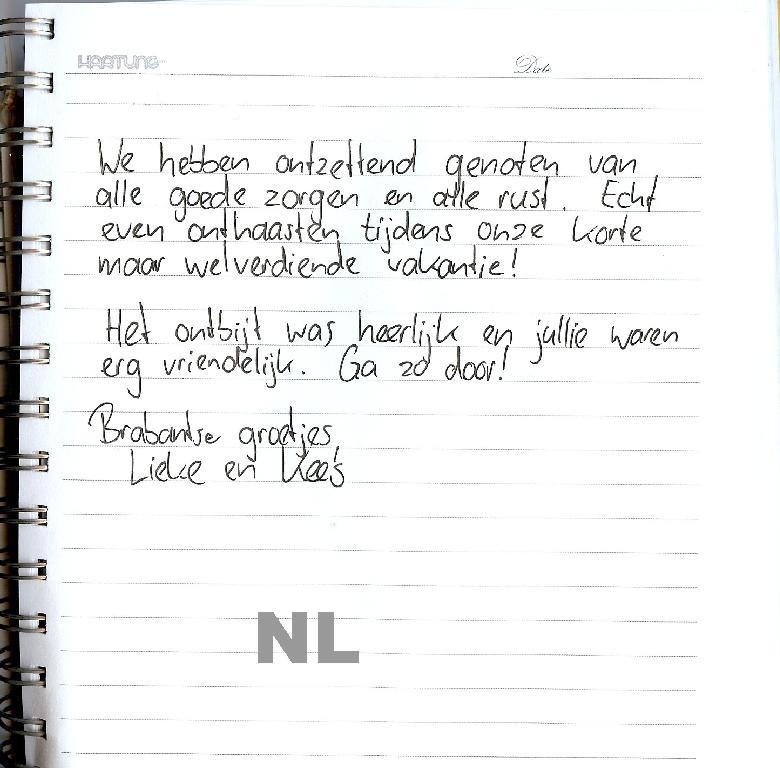 HARTUNG
Date
We hebben ontzettend genoten van
alle goede zorgen en alle rust. Echt
even onthaasten tijdens onze korte
maar welverdiende vakantie!
Het ontbijt was heerlijk en jullie waren
erg vriendelijk. Ga zo door!
Brabantse groetjes,
Lieke en Kees
NL